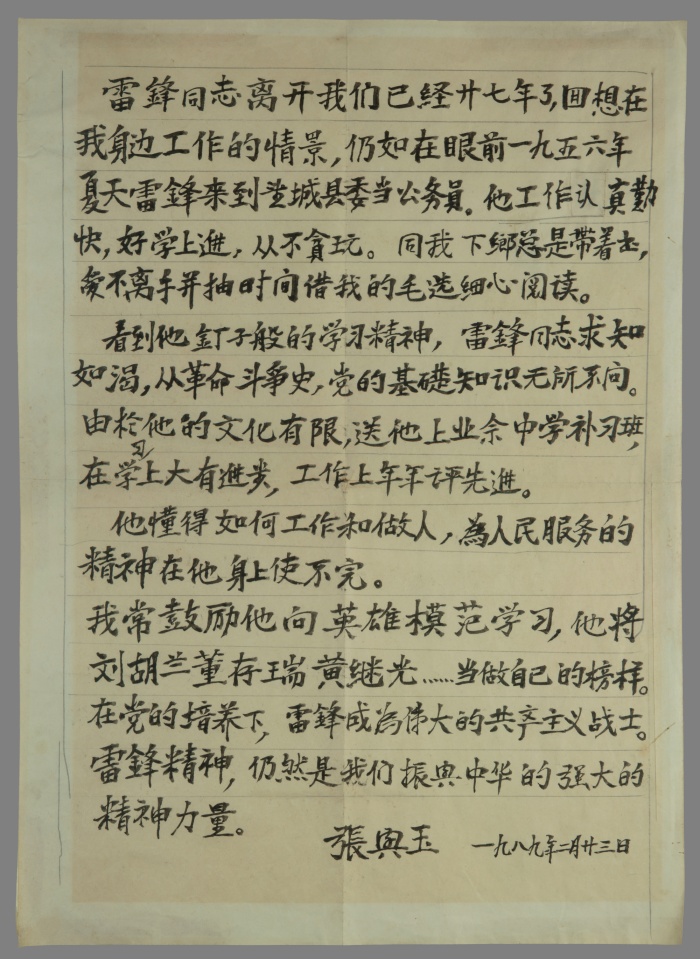 雷鋒同志离开我们已经廿七年了,回想在
我身边工作的情景,仍如在眼前一九五六年
夏天雷鋒来到望城县委当公务員。他工作认真勤
快,好学上進,从不貪玩。同我下鄉总是带着书,
爱不离手并抽时间借我的毛选细心阅读。
看到他釘子般的学习精神,雷鋒同志求知
如渴,从革命斗争史,党的基礎知识无所不问。
由於他的文化有限,送他上业余中学补习班,
在学习上大有進步,工作上年年评先進。
他懂得如何工作和做人,為人民服务的
精神在他身上使不完。
我常鼓励他向英雄模范学习,他将
刘胡兰董存瑞黄继光……当做自己的榜样。
在党的培养下,雷鋒成为伟大的共产主义战士。
雷鋒精神,仍然是我们振興中华的强大的
精神力量。
張興玉 一九八九年二月廿三日